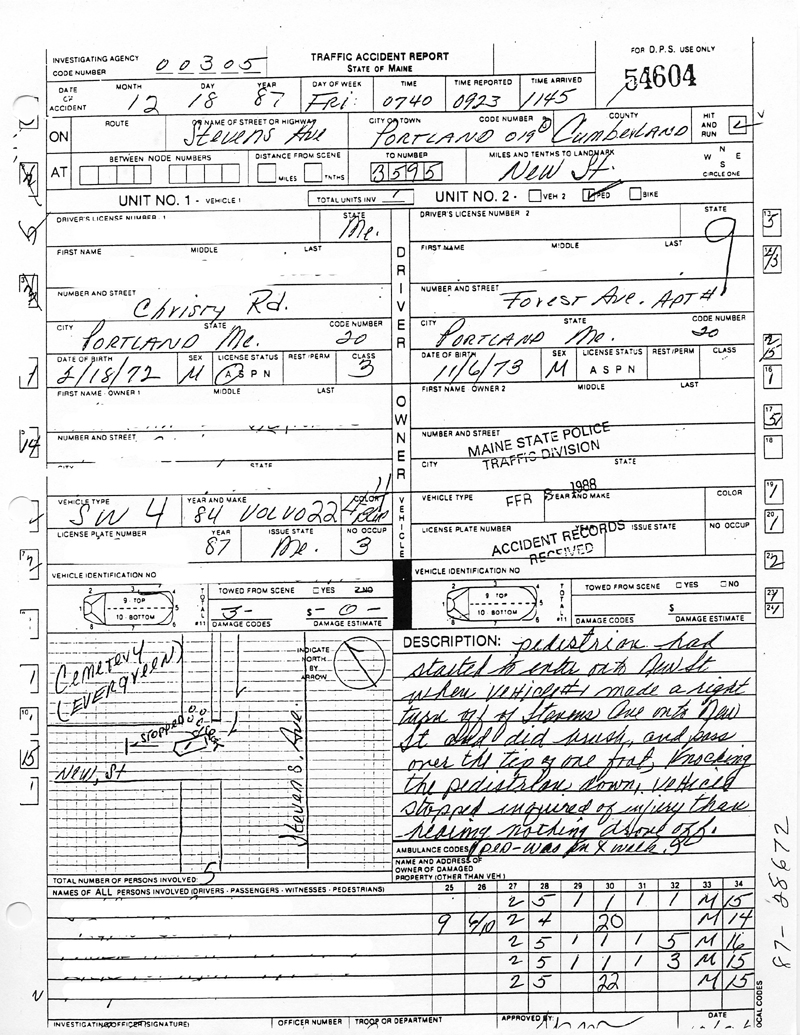 INVESTIGATING AGENCY
CODE NUMBER 00305
TRAFFIC ACCIDENT REPORT
STATE OF MAINE
FOR D.P.S. USE ONLY
54604
DATE OF ACCIDENT MONTH 12 DAY 18 YEAR 87 DAY OF WEEK Fri: TIME 0740 TIME REPORTED 0923 TIME ARRIVED 1145
ON ROUTE OR NAME OF STREET OR HIGHWAY Stevens Ave CITY OR TOWN PORTLAND CODE NUMBER COUNTY Cumberland HIT AND RUN
AT BETWEEN NODE NUMBERS DISTANCE FROM SCENE MILES TNTHS TO NUMBER 3595 MILES AND TENTHS TO LANDMARK New St. N W E S CIRCLE ONE
UNIT NO. 1 - VEHICLE 1 TOTAL UNITS INV 1 UNIT NO. 2 - VEH 2 PED BIKE
DRIVER'S LICENSE NUMBER 1 STATE Me. DRIVER'S LICENSE NUMBER 2 STATE
FIRST NAME MIDDLE LAST DRIVER FIRST NAME MIDDLE LAST
NUMBER AND STREET Christy Rd. NUMBER AND STREET Forest Ave. APT # 9
CITY PORTLAND STATE Me. CODE NUMBER 20 CITY PORTLAND STATE Me. CODE NUMBER 20
DATE OF BIRTH 2/18/72 SEX M LICENSE STATUS A S P N REST/PERM CLASS 3 DATE OF BIRTH 11/6/73 SEX M LICENSE STATUS A S P N REST/PERM CLASS
FIRST NAME OWNER 1 MIDDLE LAST OWNER FIRST NAME OWNER 2 MIDDLE LAST
NUMBER AND STREET NUMBER AND STREET
MAINE STATE POLICE
TRAFFIC DIVISION
CITY STATE CITY STATE
VEHICLE TYPE SW 4 YEAR AND MAKE 84 VOLVO 22 COLOR VEHICLE VEHICLE TYPE YEAR AND MAKE COLOR
1988
LICENSE PLATE NUMBER YEAR 87 ISSUE STATE Me. NO OCCUP 3 LICENSE PLATE NUMBER ISSUE STATE NO OCCUP
ACCIDENT RECORDS
RECEIVED
VEHICLE IDENTIFICATION NO VEHICLE IDENTIFICATION NO
9 TOP 10 BOTTOM TOTAL #11 TOWED FROM SCENE YES NO 9 TOP 10 BOTTOM TOTAL #11 TOWED FROM SCENE YES NO
3- DAMAGE CODES $-0- DAMAGE ESTIMATE DAMAGE CODES $ DAMAGE ESTIMATE
Cemetery
(EVERGREEN)
INDICATE NORTH BY ARROW
STOPPED
New, St
Stevens. Ave.
DESCRIPTION: pedestrian had
started to enter onto New St
when vehicle #1 made a right
turn off of Stevens Ave onto New
St and did brush, and pass
over the tip of one foot, knocking
the pedestrian down, vehicle
stopped inquired of injury than
hearing nothing drove off.
AMBULANCE CODES ped-was in X walk.
NAME AND ADDRESS OF OWNER OF DAMAGED PROPERTY (OTHER THAN VEH)
TOTAL NUMBER OF PERSONS INVOLVED: 5
NAMES OF ALL PERSONS INVOLVED (DRIVERS - PASSENGERS - WITNESSES - PEDESTRIANS) 25 26 27 28 29 30 31 32 33 34
2 5 1 1 1 1 M 15
9 6/10 2 4 20 M 14
2 5 1 1 1 5 M 16
2 5 1 1 1 3 M 15
2 5 22 M 15
INVESTIGATING OFFICER (SIGNATURE) OFFICER NUMBER TROOP OR DEPARTMENT APPROVED BY: DATE
LOCAL CODES
87-28672